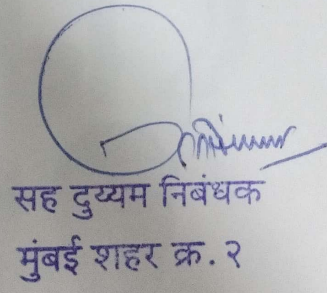 सह दुय्यम निबंधक
मुंबई शहर क्र. २